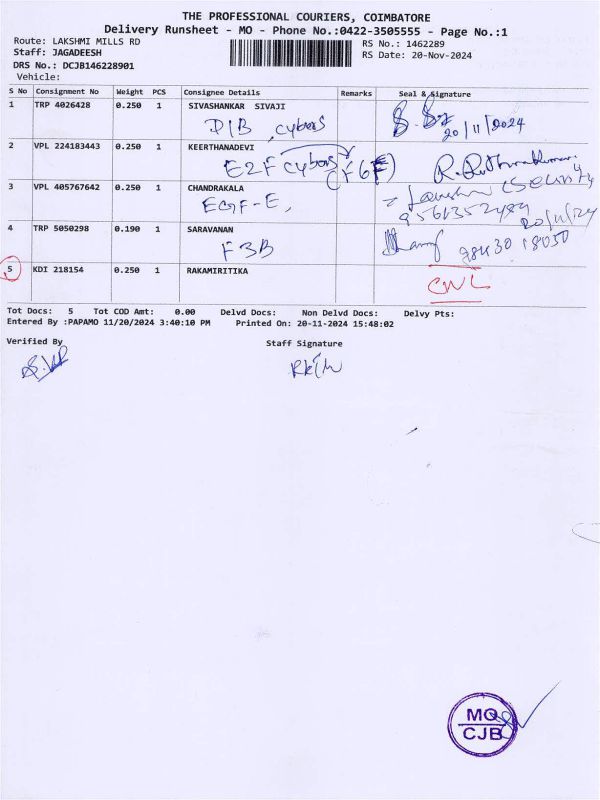 THE PROFESSIONAL COURIERS, COIMBATORE
Delivery Runsheet - MO - Phone No.:0422-3505555 - Page No.:1
Route: LAKSHMI MILLS RD
RS No.: 1462289
Staff: JAGADEESH
RS Date: 20-Nov-2024
DRS No.: DCJB146228901
Vehicle:
S No Consignment No Weight PCS Consignee Details Remarks Seal & Signature
1 TRP 4026428 0.250 1 SIVASHANKAR SIVAJI
20/11/2024
2 VPL 224183443 0.250 1 KEERTHANADEVI
E2F
3 VPL 405767642 0.250 1 CHANDRAKALA
20/11/24
4 TRP 5050298 0.190 1 SARAVANAN
F3B
5 KDI 218154 0.250 1 RAKAMIRITIKA
CNL
Tot Docs: 5 Tot COD Amt: 0.00 Delvd Docs: Non Delvd Docs: Delvy Pts:
Entered By :PAPAMO 11/20/2024 3:40:10 PM Printed On: 20-11-2024 15:48:02
Verified By Staff Signature
MO
CJB